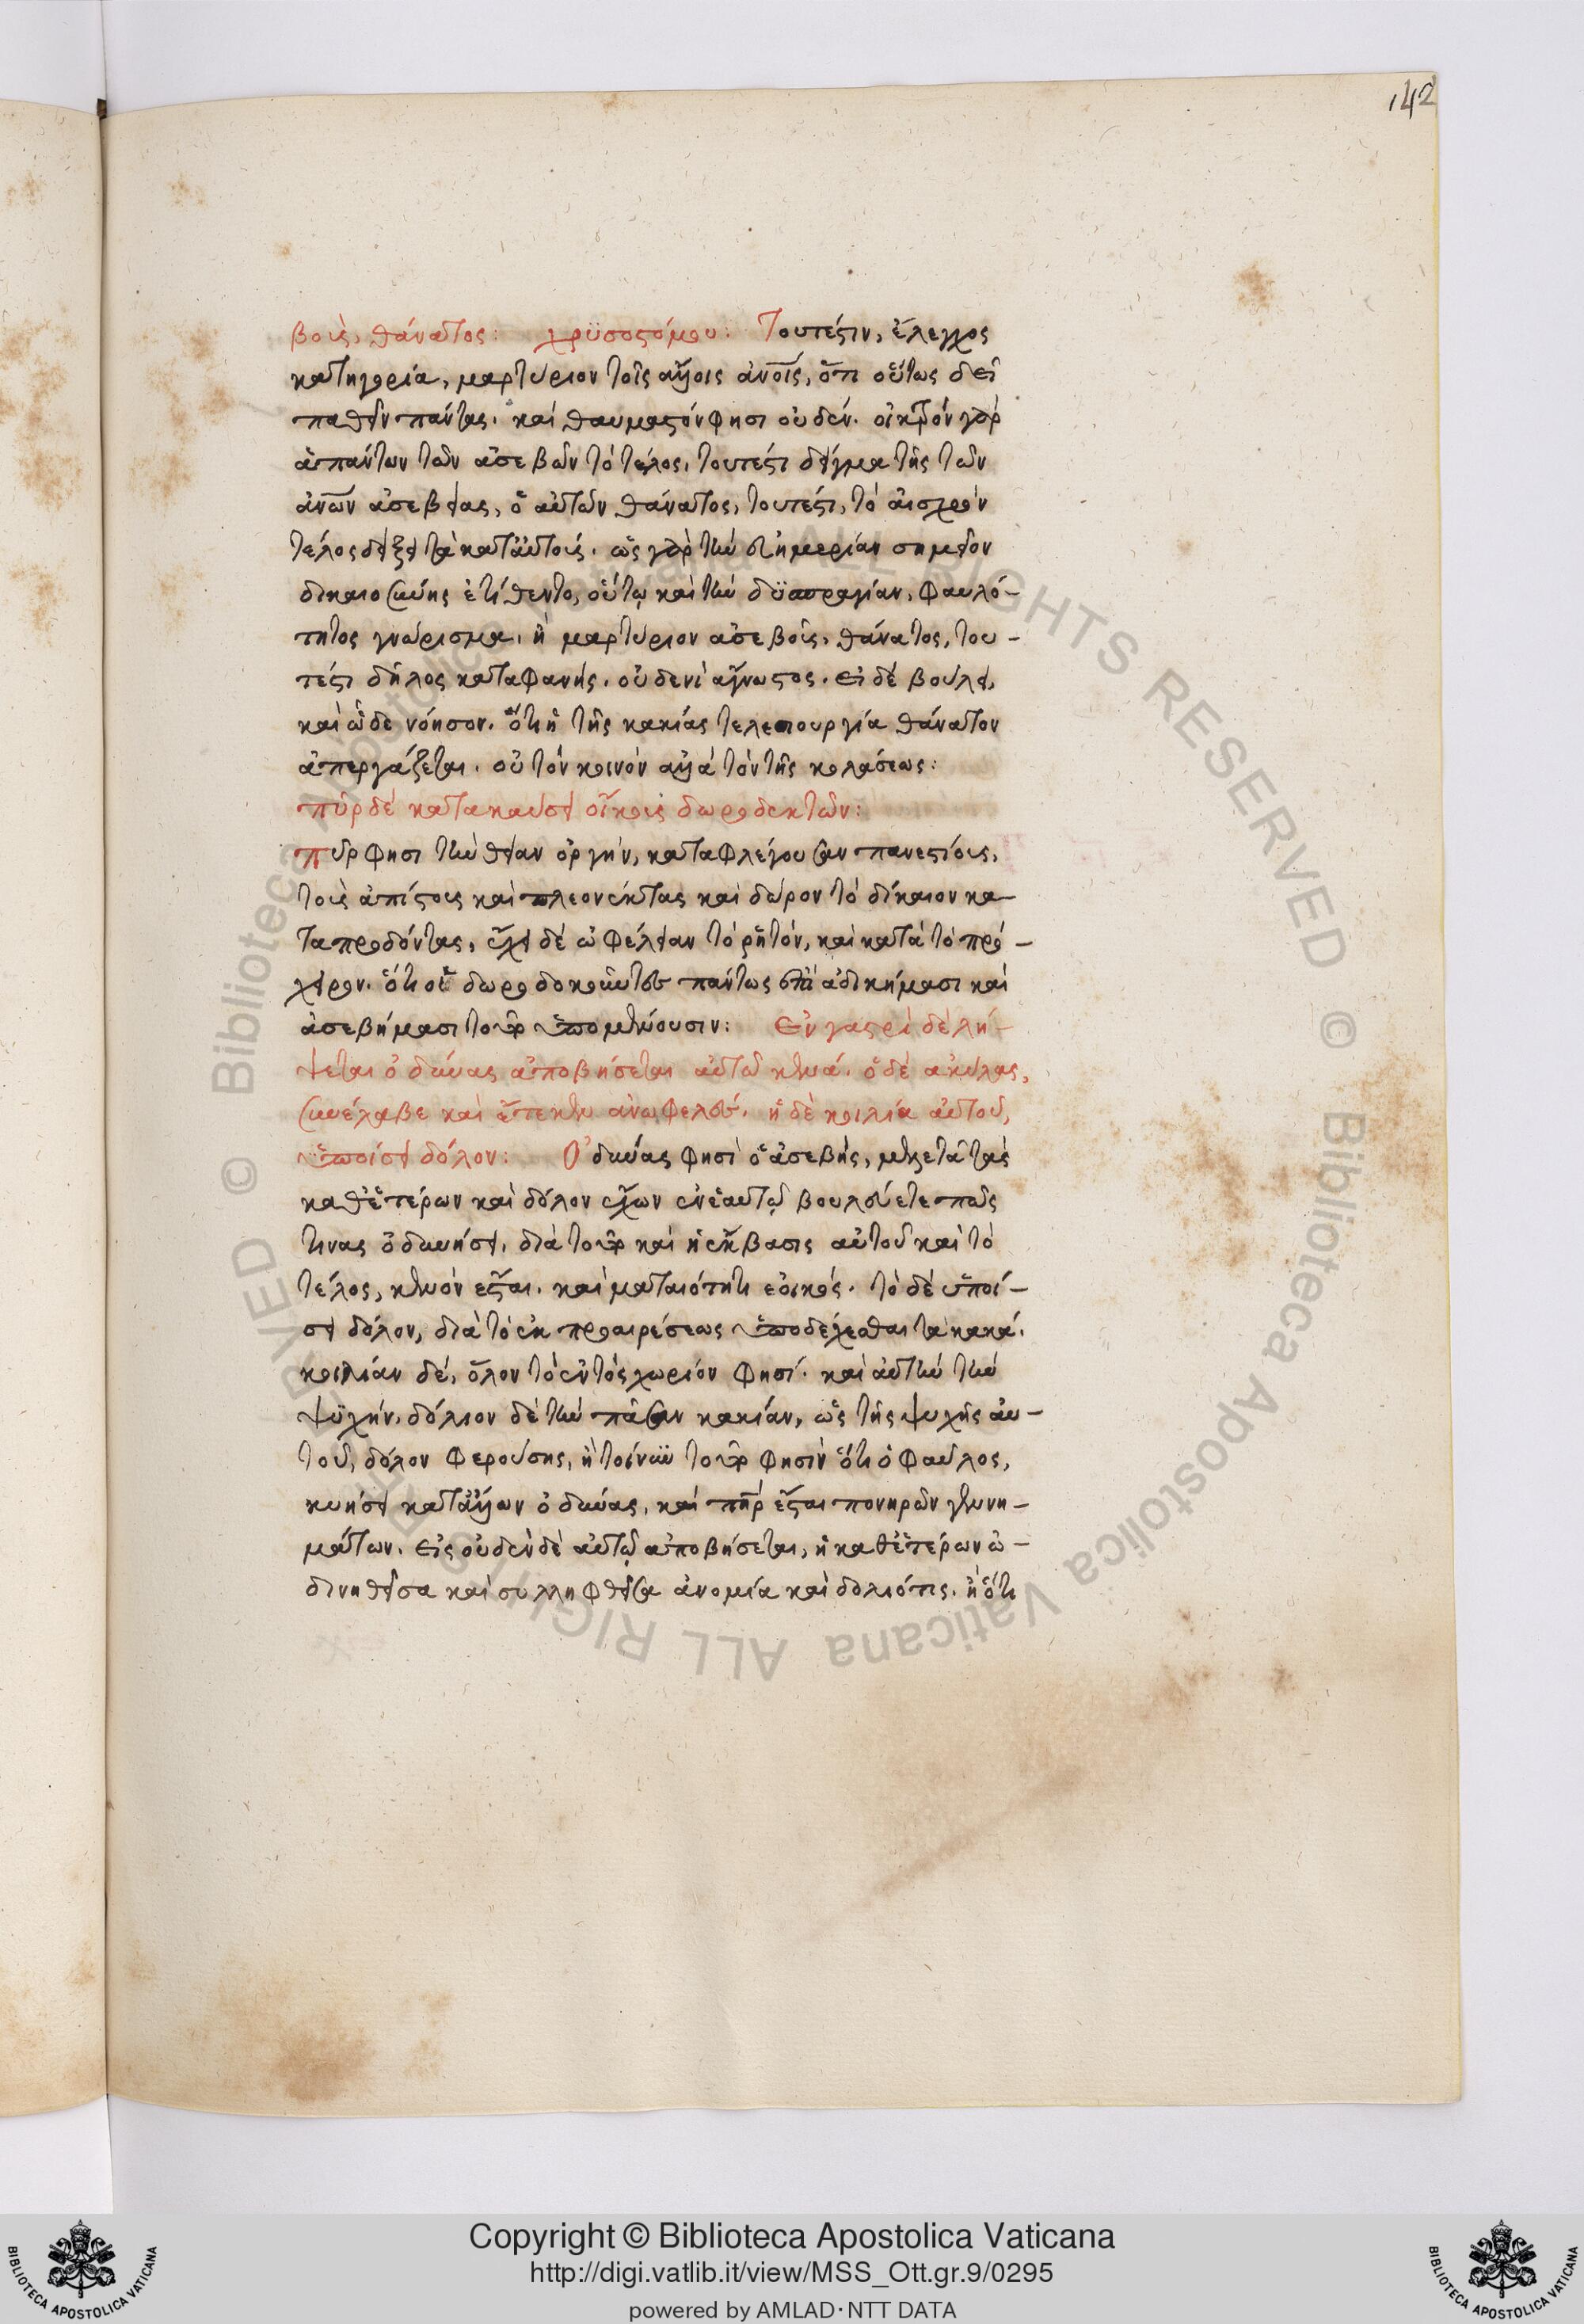 142
βοῦς, θάνατος: χρϋσοστόμου: Τουτέστιν, ἔλεγχος
κατηγορία, μαρτύριον τοῖς ἄλλοις ἀνοῖς, ὅτι οὕτως δεῖ
παθεῖν πάντας. καὶ θαυμαστόν φησι οὐδέν. οἰκτρὸν γὰρ
ἁπάντων τῶν ἀσεβῶν τὸ τέλος, τουτέστι δεῖγμα τῆς τῶν
ἀνῶν ἀσεβείας, ὁ αὐτῶν θάνατος, τουτέστι, τὸ αἰσχρὸν
τέλος δείξει τὰ κατ αὐτούς. ὡς γὰρ τὴν εὐημερίαν σημεῖον
δικαιοσύνης ἐτίθεντο, οὕτω καὶ τὴν δϋσπραγίαν, φαυλό-
τητος γνώρισμα. ἢ μαρτύριον ἀσεβοῖς, θάνατος, του-
τέστι δῆλος καταφανής. οὐδενὶ ἄγνωστος. εἰ δὲ βούλει,
καὶ ὧδε νόησον. ὅτι ἡ τῆς κακίας τελεσιουργία θάνατον
ἀπεργάζεται. οὐ τὸν κοινὸν ἀλλὰ τὸν τῆς κολάσεως:
πῦρ δὲ κατακαύσει οἴκους δωροδεκτῶν:
πῦρ φησι τὴν θείαν ὀργὴν, καταφλέγουσαν πανεστίους,
τοὺς ἀπίστους καὶ πλεονέκτας καὶ δῶρον τὸ δίκαιον κα-
ταπροδόντας, ἔχει δὲ ὠφέλειαν τὸ ῥητὸν, καὶ κατὰ τὸ πρό-
χειρον. ὅτι οἱ δωροδοκοῦντες πάντως ἐπὶ ἀδικήμασι καὶ
ἀσεβήμασι τοῦτο ὑπομένουσιν: Ἐν γαστρὶ δὲ λή-
ψεται ὀδύνας ἀποβήσεται αὐτῷ κενά. ὁ δὲ ἀκύλας,
συνέλαβε καὶ ἔτεκεν ἀνωφελές. ἡ δὲ κοιλία αὐτοῦ,
ὑποίσει δόλον: Ὀδύνας φησὶ ὁ ἀσεβὴς, μελετᾶ τὰς
καθ ἑτέρων καὶ δόλον ἔχων ἐν ἑαυτῷ βουλεύετε πῶς
τινας ὀδυνήσει, διὰ τοῦτο καὶ ἡ ἔκβασις αὐτοῦ καὶ τὸ
τέλος, κενὸν ἔσται. καὶ ματαιότητι ἐοικός. τὸ δὲ ὑποί-
σει δόλον, διὰ τὸ ἐκ προαιρέσεως ὑποδέχεσθαι τὰ κακά.
κοιλίαν δέ, ὅλον τὸ ἐντὸς χωρίον φησί. καὶ αὐτὴν τὴν
ψϋχήν. δόλιον δὲ τὴν πᾶσαν κακίαν, ὡς τῆς ψυχῆς αὐ-
τοῦ, δόλον φερούσης, ἢ τοίνυν τοῦτο φησὶν ὅτι ὁ φαῦλος,
κυήσει κατ ἄλλων ὀδύνας, καὶ πηρ ἔσται πονηρῶν γεννη-
μάτων. εἰς οὐδὲν δὲ αὐτῷ ἀποβήσεται, ἡ καθ ἑτέρων ὠ-
δινηθεῖσα καὶ συλληφθεῖσα ἀνομία καὶ δολιότις. ἢ ὅτι
Copyright © Biblioteca Apostolica Vaticana
http://digi.vatlib.it/view/MSS_Ott.gr.9/0295
powered by AMLAD·NTT DATA
BIBLIOTECA APOSTOLICA VATICANA
BIBLIOTECA APOSTOLICA VATICANA
Biblioteca Apostolica Vaticana ALL RIGHTS RESERVED ©